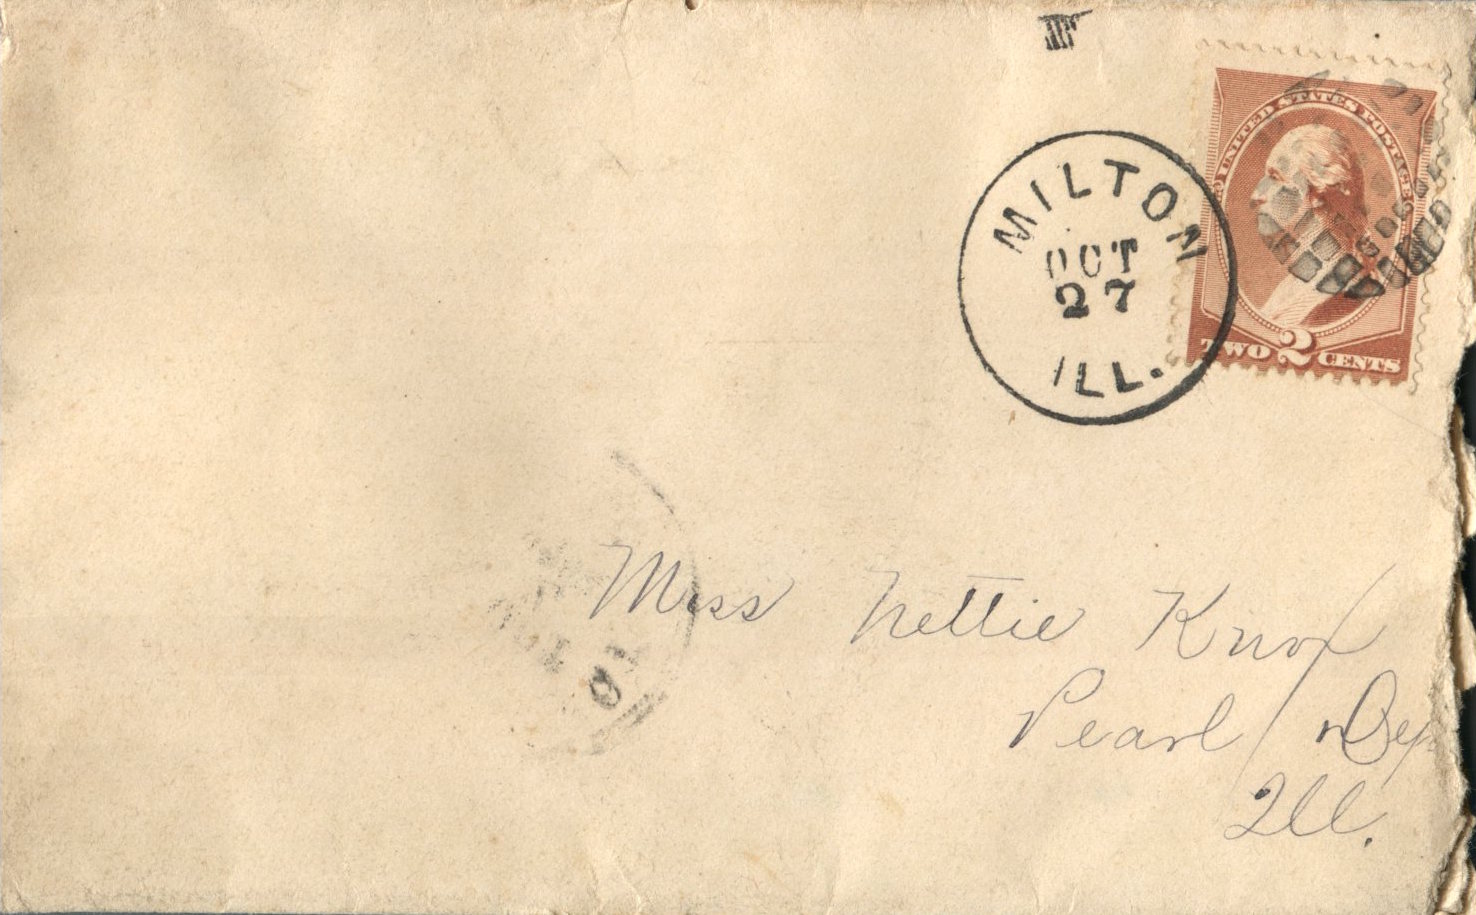 MILTON
OCT
27
ILL.
UNITED STATES POSTAGE
TWO 2 CENTS
Miss Nettie Knox
Pearl
Ill.